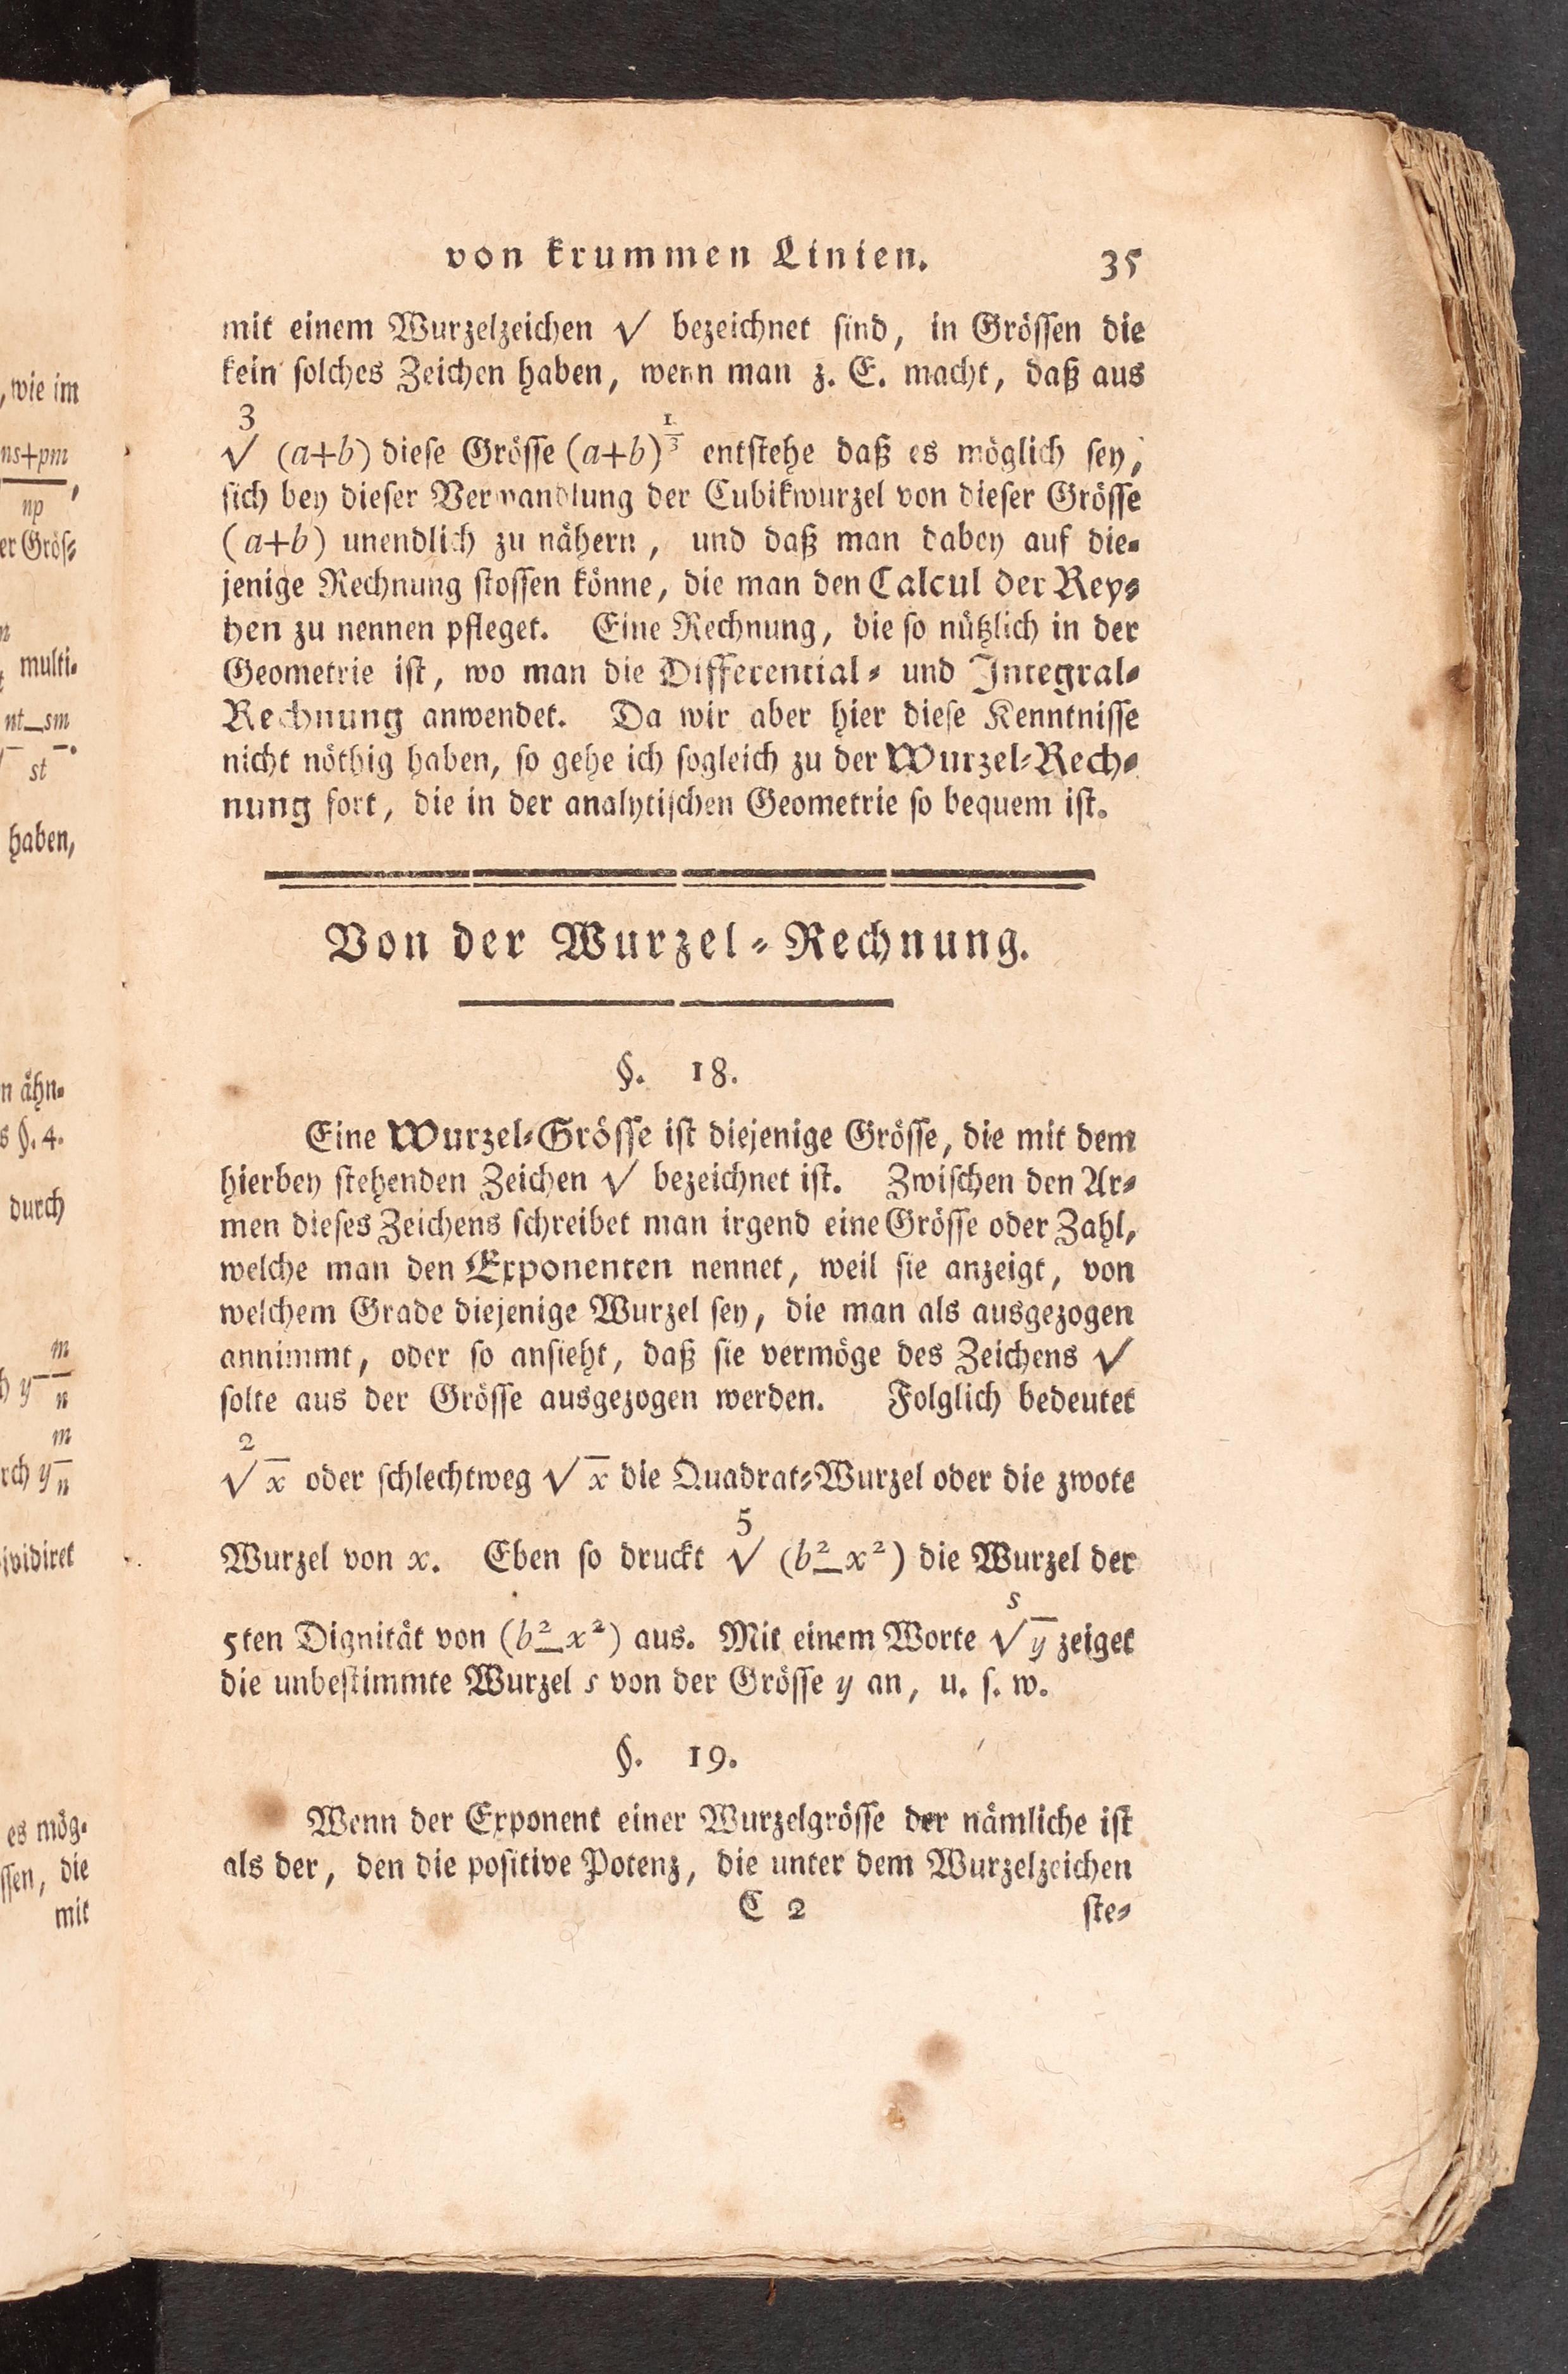 von krummen Linien. 35
mit einem Wurzelzeichen √ bezeichnet sind, in Grössen die
kein solches Zeichen haben, wenn man z. E. macht, daß aus
3
√ (a+b) diese Grösse (a+b)^1/3 entstehe daß es möglich sey,
sich bey dieser Verwandlung der Cubikwurzel von dieser Grösse
(a+b) unendlich zu nähern, und daß man dabey auf die-
jenige Rechnung stossen könne, die man den Calcul der Rey-
hen zu nennen pfleget. Eine Rechnung, die so nützlich in der
Geometrie ist, wo man die Differential- und Integral-
Rechnung anwendet. Da wir aber hier diese Kenntnisse
nicht nöthig haben, so gehe ich sogleich zu der Wurzel-Rech-
nung fort, die in der analytischen Geometrie so bequem ist.
Von der Wurzel-Rechnung.
§. 18.
Eine Wurzel-Grösse ist diejenige Grösse, die mit dem
hierbey stehenden Zeichen √ bezeichnet ist. Zwischen den Ar-
men dieses Zeichens schreibet man irgend eine Grösse oder Zahl,
welche man den Exponenten nennet, weil sie anzeigt, von
welchem Grade diejenige Wurzel sey, die man als ausgezogen
annimmt, oder so ansieht, daß sie vermöge des Zeichens √
solte aus der Grösse ausgezogen werden. Folglich bedeutet
2
√x oder schlechtweg √x die Quadrat-Wurzel oder die zwote
5
Wurzel von x. Eben so druckt √ (b²—x²) die Wurzel der
s
5ten Dignität von (b²—x²) aus. Mit einem Worte √y zeiget
die unbestimmte Wurzel s von der Grösse y an, u. s. w.
§. 19.
Wenn der Exponent einer Wurzelgrösse der nämliche ist
als der, den die positive Potenz, die unter dem Wurzelzeichen
C 2 ste-